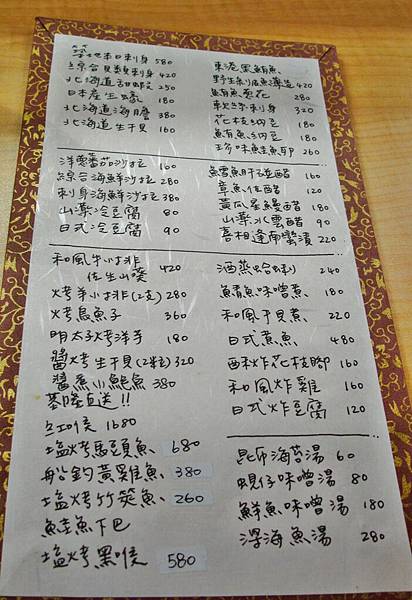 綜合貝類刺身 420
北海道甜蝦 250
日本產生蠔 180
北海道海膽 380
北海道生干貝 160
洋蔥蕃茄沙拉 160
綜合海鮮沙拉 280
刺身海鮮沙拉 380
山藥冷豆腐 80
日式冷豆腐 90
和風牛小排 420
佐生山葵
烤羊小排(2支) 280
烤烏魚子 360
明太子烤洋芋 180
醬烤生干貝(2粒) 320
醬煮小鮑魚 380
基隆直送!!
紅喉 1680
塩烤馬頭魚 680
船釣黃雞魚 380
塩烤竹筴魚 260
鮭魚下巴
塩烤黑喉 580
東港黑鮪魚
420
鮪魚蔥花 280
軟絲刺身 320
花枝納豆 180
鮪魚納豆 180
珍味鮭魚卵 260
160
章魚佐醋 120
黃瓜星鰻醋 160
山藥水雲醋 90
喜相逢南蠻漬 220
酒蒸蛤蜊 240
鯖魚味噌煮 180
和風干貝煮 220
日式煮魚 480
酥炸花枝腳 160
和風炸雞 160
日式炸豆腐 120
昆布海苔湯 60
蜆仔味噌湯 80
鮮魚味噌湯 180
深海魚湯 280